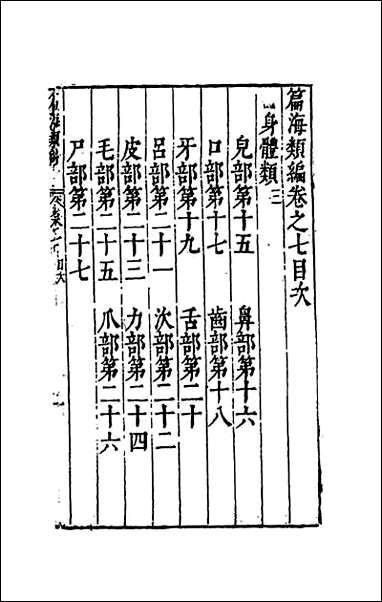 篇海類編卷之七目次
身體類三
皃部第十五 鼻部第十六
口部第十七 齒部第十八
牙部第十九 舌部第二十
呂部第二十一 㳄部第二十二
皮部第二十三 力部第二十四
毛部第二十五 爪部第二十六
尸部第二十七